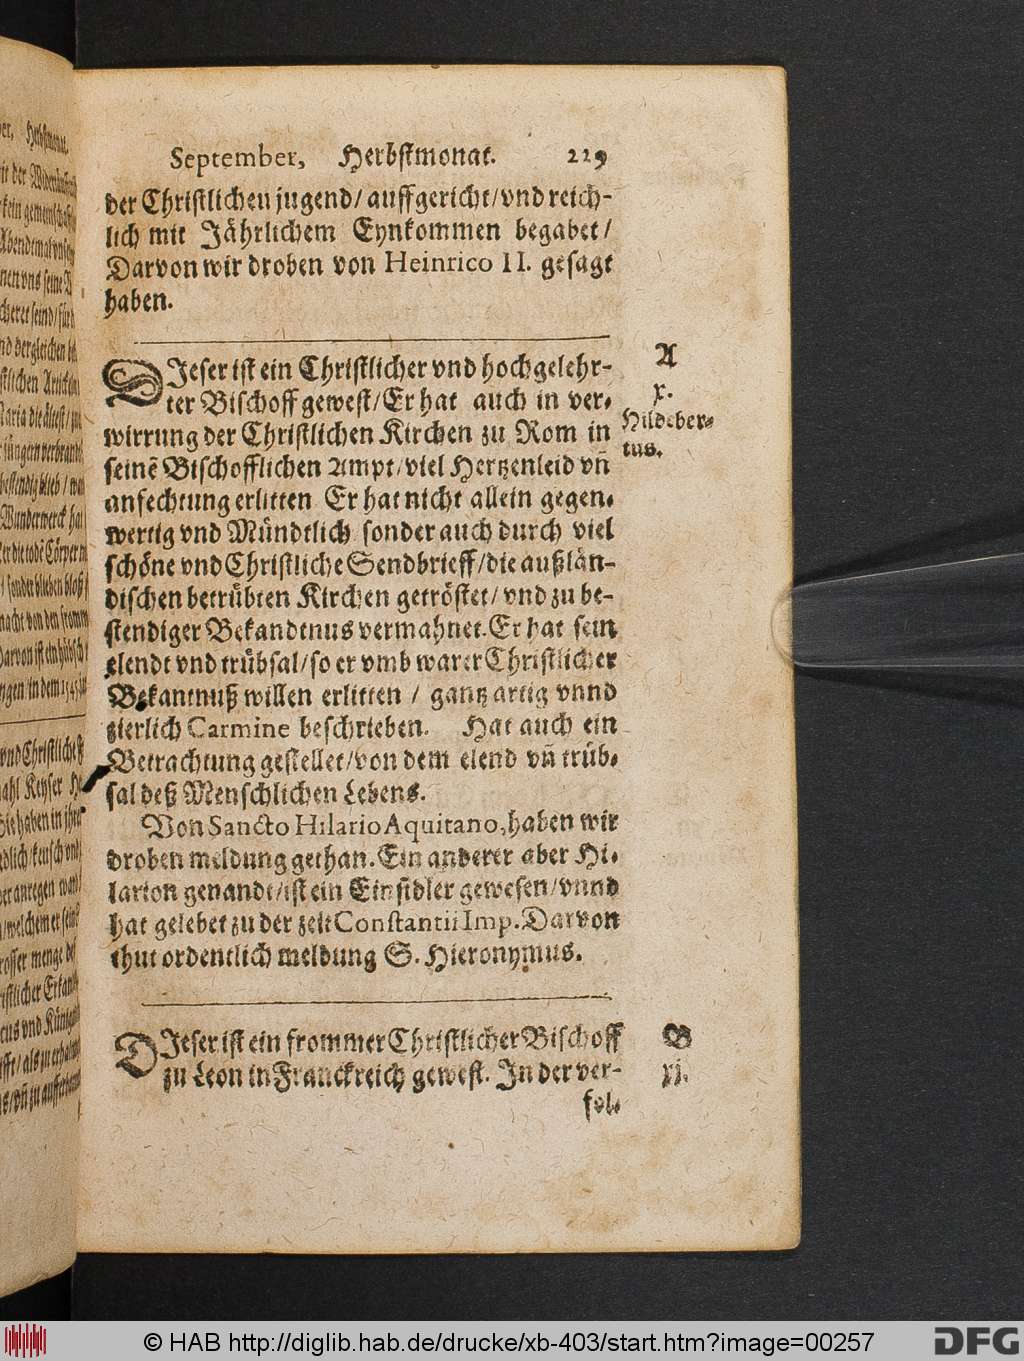 September, Herbstmonat. 229
der Christlichen jugend/ auffgericht/ vnd reich-
lich mit Jährlichem Eynkommen begabet/
Darvon wir droben von Heinrico II. gesagt
haben.
DIeser ist ein Christlicher vnd hochgelehr-
ter Bischoff gewest/ Er hat auch in ver-
wirrung der Christlichen Kirchen zu Rom in
seinẽ Bischofflichen Ampt/ viel Hertzenleid vñ
anfechtung erlitten Er hat nicht allein gegen-
wertig vnd Mündtlich sonder auch durch viel
schöne vnd Christliche Sendbrieff/ die außlän-
dischen betrübten Kirchen getröstet/ vnd zu be-
stendiger Bekandtnus vermahnet. Er hat sein
elendt vnd trübsal/ so er vmb warer Christlicher
Bekantnuß willen erlitten / gantz artig vnnd
zierlich Carmine beschrieben. Hat auch ein
Betrachtung gestellet/ von dem elend vñ trüb-
sal deß Menschlichen Lebens.
Von Sancto Hilario Aquitano, haben wir
droben meldung gethan. Ein anderer aber Hi-
larion genandt/ ist ein Einsidler gewesen/ vnnd
hat gelebet zu der zeit Constantii Imp. Darvon
thut ordentlich meldung S. Hieronymus.
DIeser ist ein frommer Christlicher Bischoff
zu Leon in Franckreich gewest. In der ver-
fol-
A
x.
Hildeber-
tus.
B
xj.
© HAB http://diglib.hab.de/drucke/xb-403/start.htm?image=00257
DFG